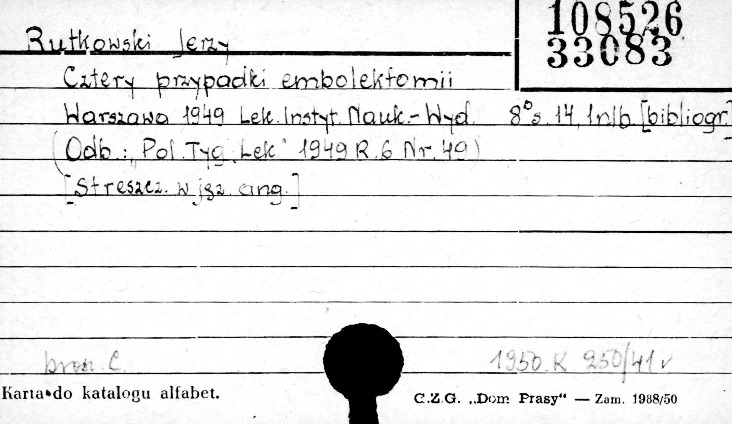 108526
33083
Rutkowski Jerzy
Cztery przypadki embolektomii
Warszawa 1949 Lek. Instyt. Nauk.-Wyd. 8° s. 14, 1nlb. [bibliogr]
(Odb.: "Pol. Tyg. Lek" 1949 R. 6 Nr. 49)
[Streszcz. w jęz. ang.]
1950. K 950/41
Karta do katalogu alfabet.
C.Z.G. „Dom Prasy" — Zam. 1988/50